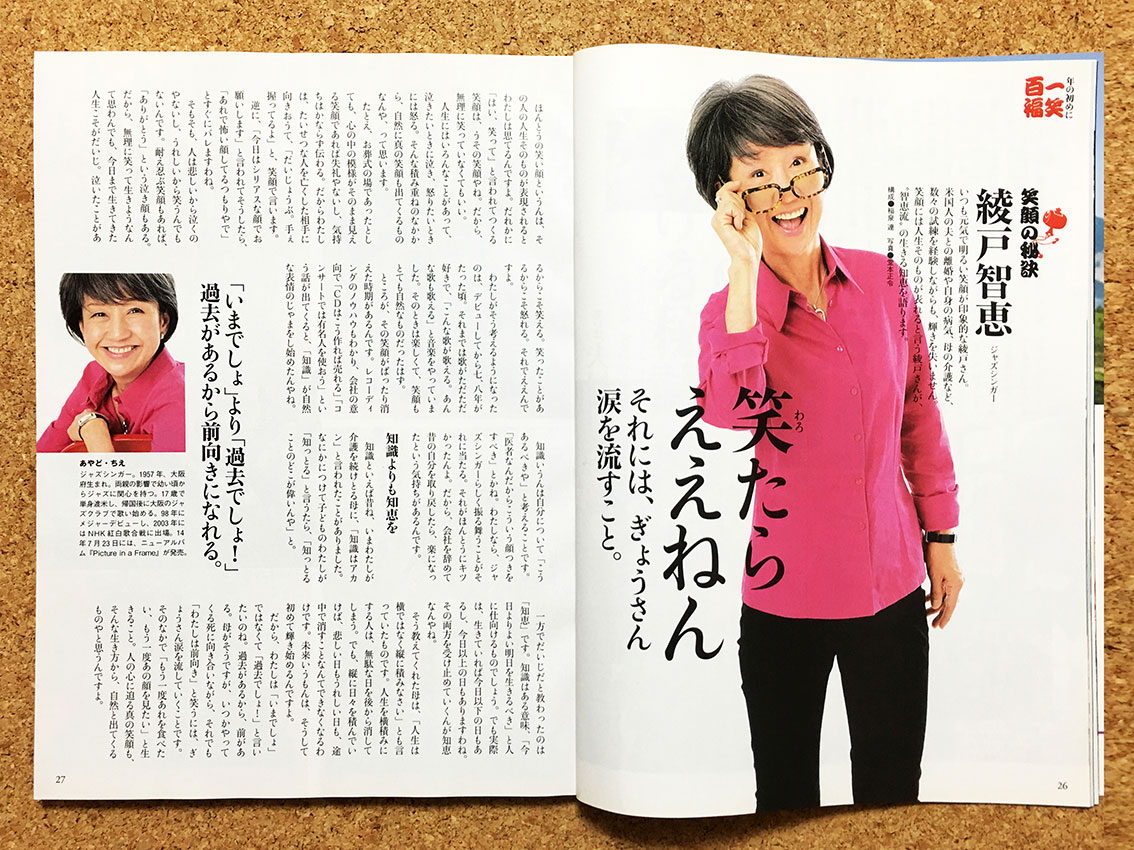 年の初めに
一笑
百福
笑顔の秘訣
綾戸智恵
ジャズシンガー
いつも元気で明るい笑顔が印象的な綾戸さん。
米国人の夫との離婚や自身の病気、母の介護など、
数々の試練を経験しながらも、輝きを失いません。
笑顔には人生そのものが表れると言う綾戸さんが、
“智恵流”の生きる知恵を語ります。
構成●稲泉 連 写真●堂本正令
笑たら
わろ
ええねん
それには、ぎょうさん
涙を流すこと。
26
ほんとうの笑い顔というんは、そ
の人の人生そのものが表現されると
わたしは思てるんですよ。だれかに
「はい、笑って」と言われてつくる
笑顔は、うその笑顔やね。だから、
無理に笑っていなくてもいい。
人生にはいろんなことがあって、
泣きたいときに泣き、怒りたいとき
には怒る。そんな積み重ねのなかか
ら、自然に真の笑顔も出てくるもの
なんや、って思います。
たとえ、お葬式の場であったとし
ても、心の中の模様がそのまま見え
る笑顔であれば失礼やないし、気持
ちはかならず伝わる。だからわたし
は、たいせつな人を亡くした相手に
向きおうて、「だいじょうぶ。手ぇ
握ってるよ」と、笑顔で言います。
逆に、「今日はシリアスな顔でお
願いします」と言われてそうしたら、
「あれで怖い顔してるつもりやで」
とすぐにバレますわね。
そもそも、人は悲しいから泣くの
やないし、うれしいから笑うんでも
ないんです。耐え忍ぶ笑顔もあれば、
「ありがとう」という泣き顔もある。
だから、無理に笑って生きようなん
て思わんでも、今日まで生きてきた
人生こそがだいじ。泣いたことがあ
るからこそ笑える。笑ったことがあ
るからこそ怒れる。それでええんで
すよ。
わたしがそう考えるようになった
のは、デビューしてから七、八年が
たった頃。それまでは歌がただただ
好きで、「こんな歌が歌える。あん
な歌も歌える」と音楽をやっていま
した。そのときは楽しくて、笑顔も
とても自然なものだったはず。
ところが、その笑顔がぱったり消
えた時期があるんです。レコーディ
ングのノウハウもわかり、会社の意
向で「CDはこう作れば売れる」「コ
ンサートでは有名人を使おう」とい
う話が出てくると、「知識」が自然
な表情のじゃまをし始めたんやね。
知識いうんは自分について「こう
あるべきや」と考えることです。
「医者なんだからこういう顔つきを
すべき」とかね。わたしなら、ジャ
ズシンガーらしく振る舞うことがそ
れに当たる。それがほんとうにキツ
かったんよ。だから、会社を辞めて
昔の自分を取り戻したら、楽になっ
たという気持ちがあるんです。
知識よりも知恵を
知識といえば昔ね、いまわたしが
介護を続けとる母に、「知識はアカ
ン」と言われたことがありました。
なにかにつけて子どものわたしが
「知っとる」と言うたら、「知っとる
ことのどこが偉いんや」と。
一方でだいじだと教わったのは
「知恵」です。知識はある意味、「今
日よりよい明日を生きるべき」と人
に仕向けるものでしょう。でも実際
は、生きていれば今日以下の日もあ
るし、今日以上の日もありますわね。
その両方を受け止めていくんが知恵
なんやね。
そう教えてくれた母は、「人生は
横ではなく縦に積みなさい」とも言
っていたものです。人生を横積みに
する人は、無駄な日を後から消して
しまう。でも、縦に日々を積んでい
けば、悲しい日もうれしい日も、途
中で消すことなんてできなくなるわ
けです。未来いうもんは、そうして
初めて輝き始めるんですよ。
だから、わたしは「いまでしょ」
ではなくて「過去でしょー！」と言い
たいのね。過去があるから、前があ
る。母がそうですが、いつかやって
くる死に向き合いながら、それでも
「わたしは前向き」と笑うには、ぎ
ょうさん涙を流していくことです。
そのなかで「もう一度あれを食べた
い、もう一度あの顔を見たい」と生
きること。人の心に迫る真の笑顔も、
そんな生き方から、自然と出てくる
ものやと思うんですよ。
「いまでしょ」より「過去でしょ！」
過去があるから前向きになれる。
あやど・ちえ
ジャズシンガー。1957年、大阪
府生まれ。両親の影響で幼い頃か
らジャズに関心を持つ。17歳で
単身渡米し、帰国後に大阪のジャ
ズクラブで歌い始める。98年に
メジャーデビューし、2003年に
はNHK紅白歌合戦に出場。14
年7月23日には、ニューアルバ
ム『Picture in a Frame』が発売。
27